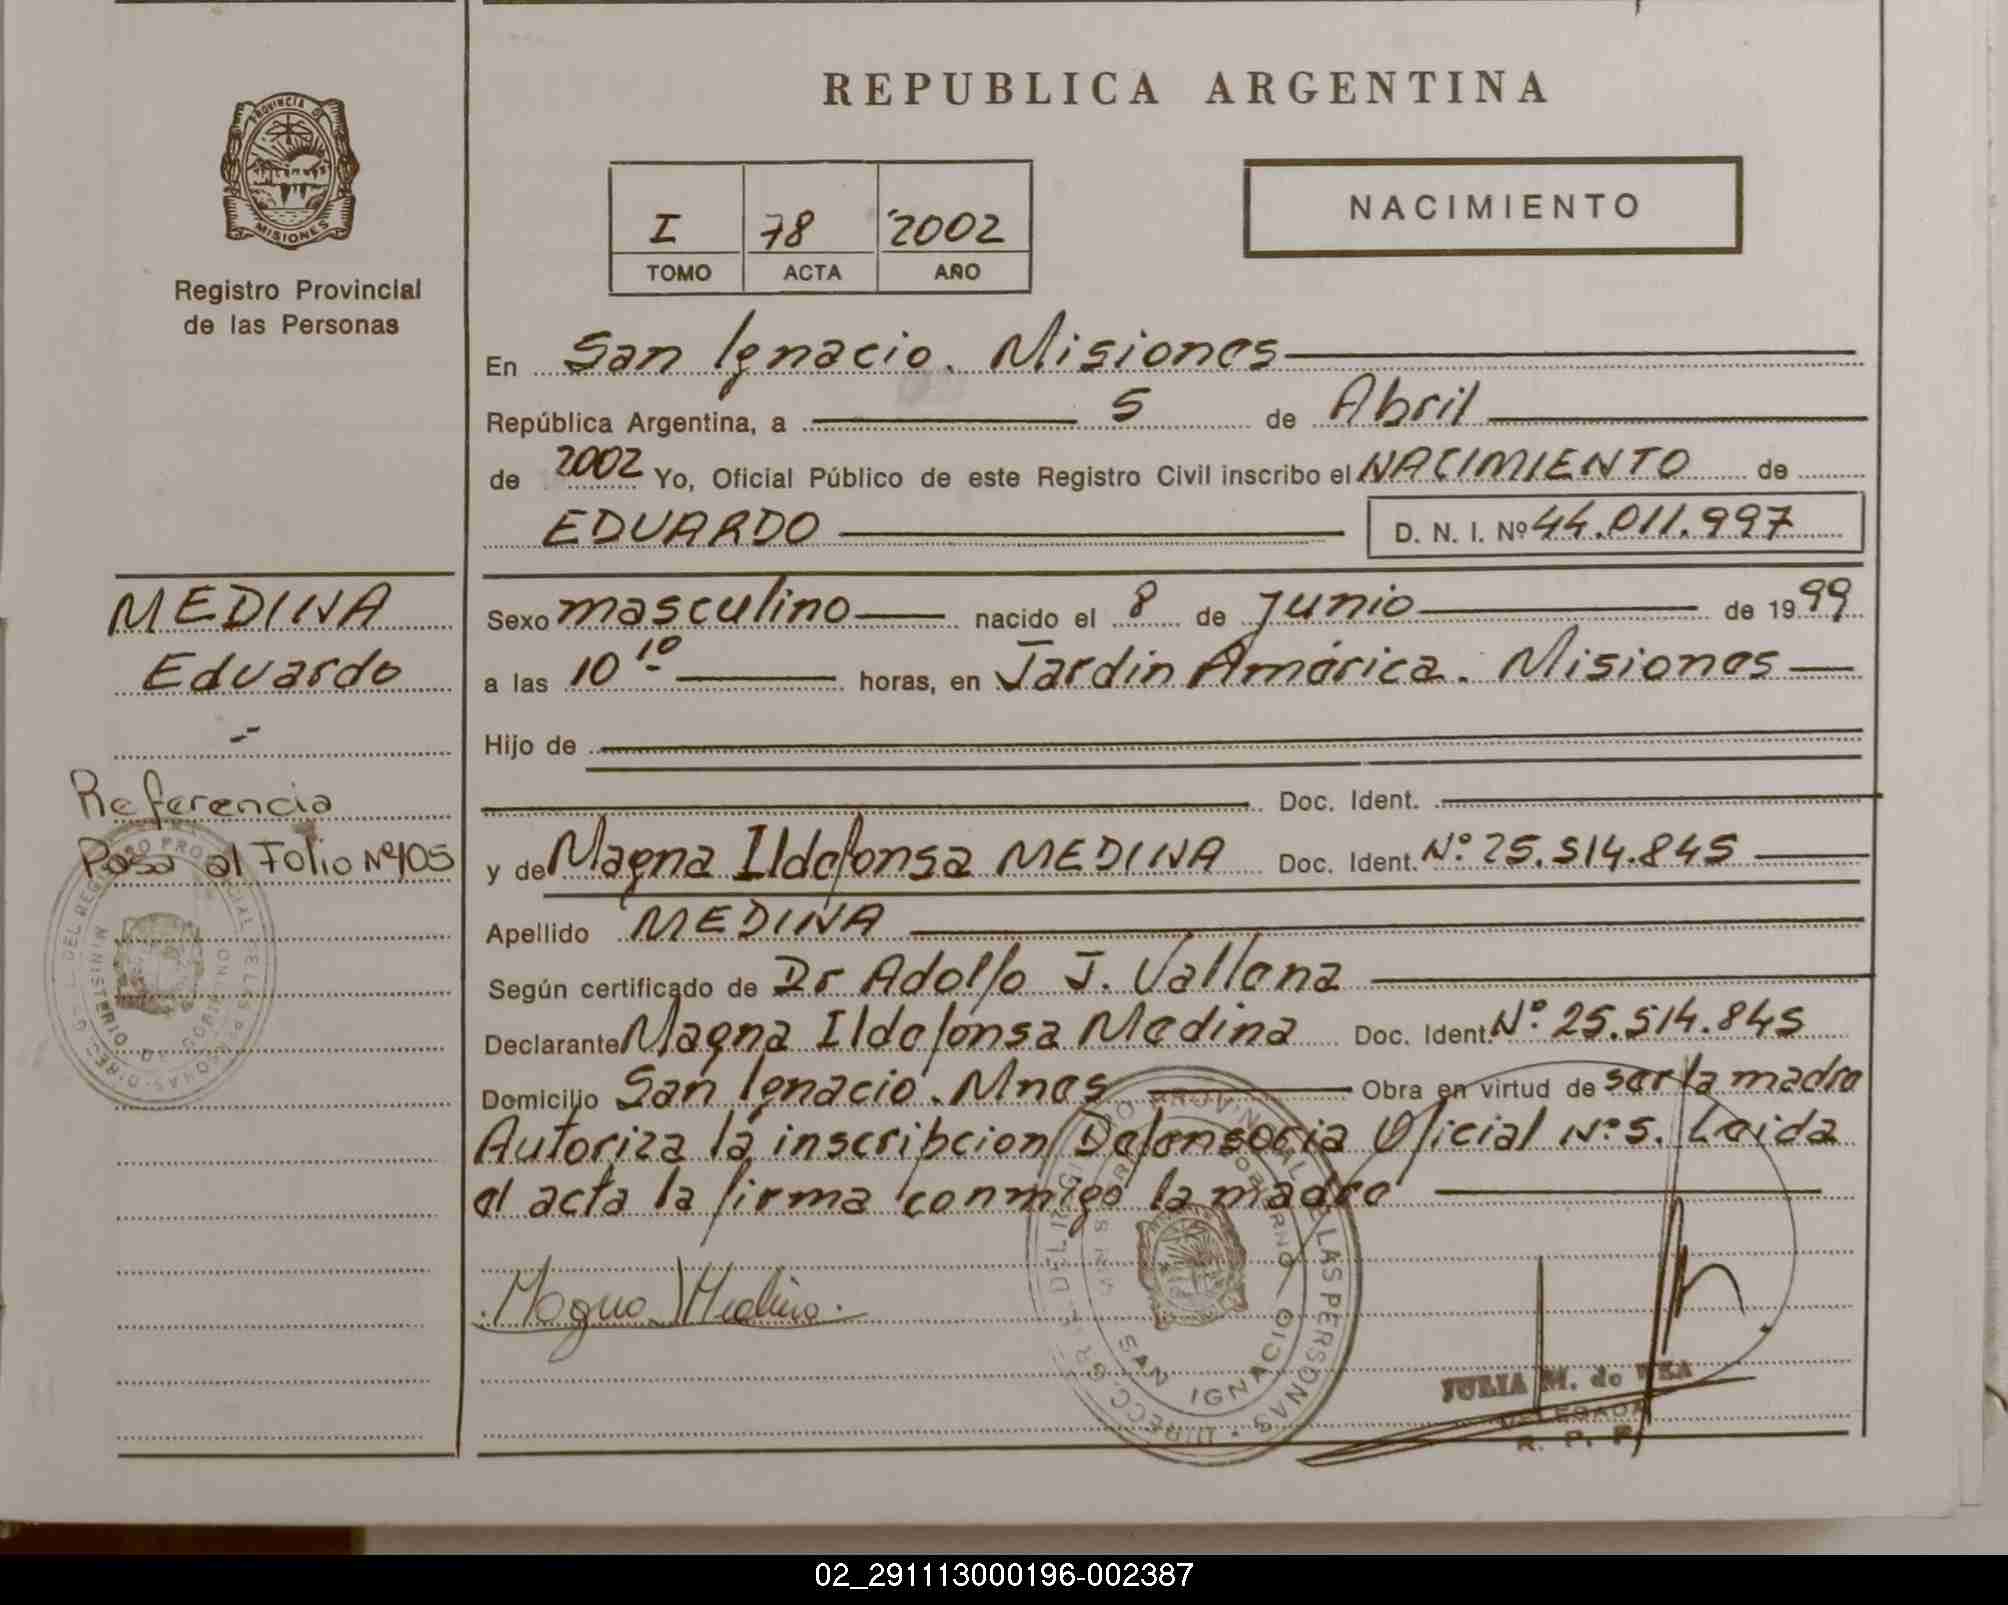 REPUBLICA ARGENTINA
PROVINCIA DE
MISIONES
Registro Provincial
de las Personas
NACIMIENTO
I 78 2002
TOMO ACTA AÑO
En San Ignacio. Misiones
República Argentina, a 5 de Abril
de 2002 Yo, Oficial Público de este Registro Civil inscribo el NACIMIENTO de
EDUARDO D. N. I. Nº 44.011.997
MEDINA
Eduardo
Referencia
Pasa al Folio Nº105
Sexo masculino nacido el 8 de junio de 1999
a las 10 10 horas, en Jardin América. Misiones
Hijo de
Doc. Ident.
y de Magna Ildefonsa MEDINA Doc. Ident. Nº 25.514.845
Apellido MEDINA
Según certificado de Dr Adolfo J. Vallana
Declarante Magna Ildefonsa Medina Doc. Ident. Nº 25.514.845
Domicilio San Ignacio. Mnes Obra en virtud de ser la madre
Autoriza la inscribcion Defensoria Oficial Nº 5. Leida
el acta la firma conmigo la madre
Magna Medina
SAN IGNACIO
JULIA M. de
DELEGADA
R. P. P.
02_291113000196-002387